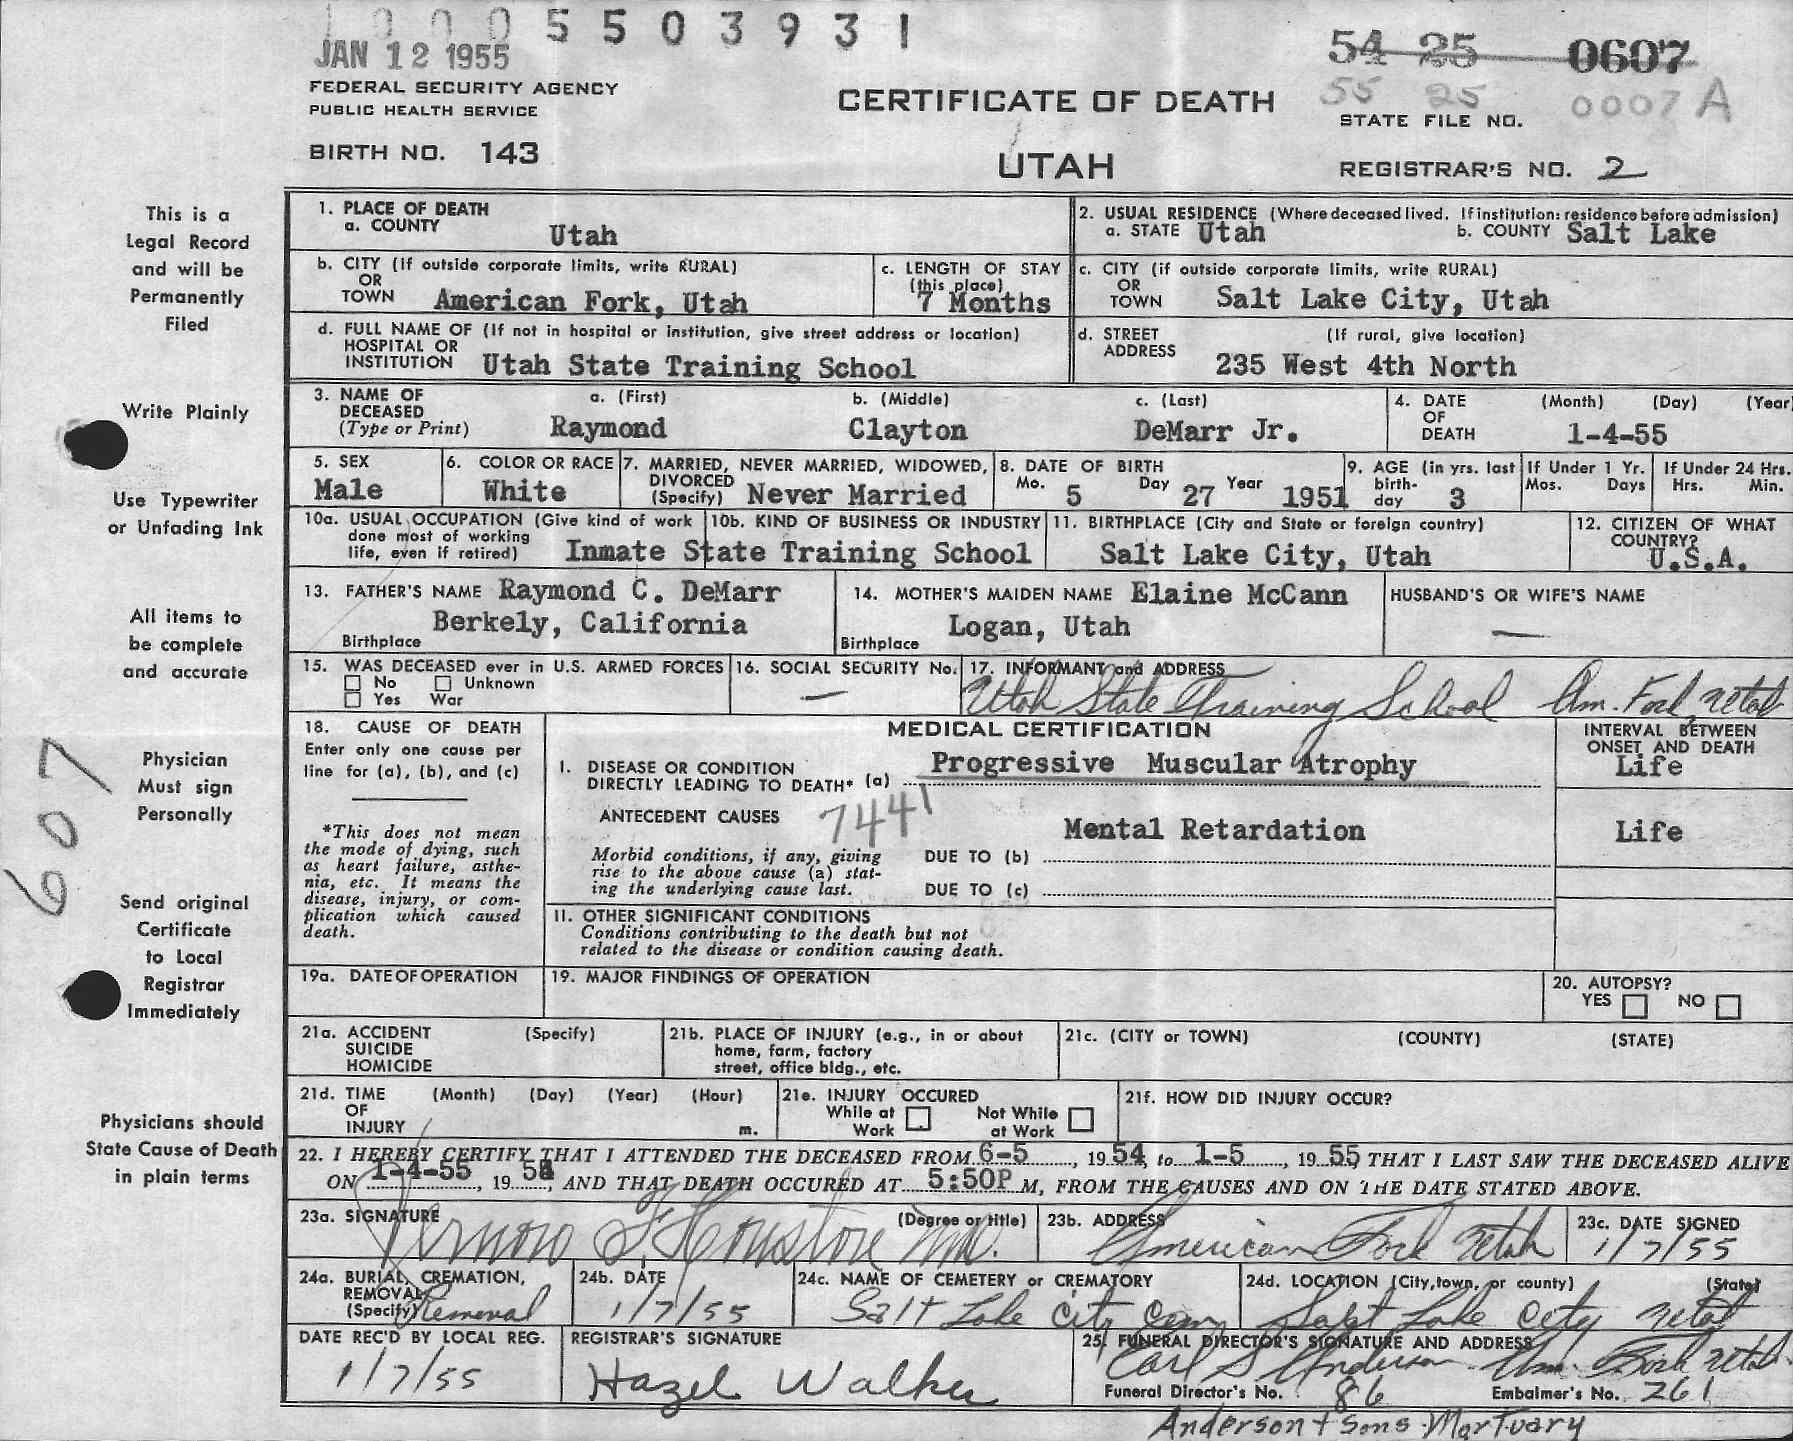 1000 5503931
JAN 12 1955
54 25 0607
55 25 0007 A
FEDERAL SECURITY AGENCY
PUBLIC HEALTH SERVICE
CERTIFICATE OF DEATH
STATE FILE NO.
BIRTH NO. 143
UTAH
REGISTRAR'S NO. 2
This is a
Legal Record
and will be
Permanently
Filed
Write Plainly
Use Typewriter
or Unfading Ink
All items to
be complete
and accurate
Physician
Must sign
Personally
607
Send original
Certificate
to Local
Registrar
Immediately
Physicians should
State Cause of Death
in plain terms
1. PLACE OF DEATH
a. COUNTY Utah
2. USUAL RESIDENCE (Where deceased lived. If institution: residence before admission)
a. STATE Utah b. COUNTY Salt Lake
b. CITY (If outside corporate limits, write RURAL)
OR
TOWN American Fork, Utah
c. LENGTH OF STAY
(this place)
7 Months
c. CITY (if outside corporate limits, write RURAL)
OR
TOWN Salt Lake City, Utah
d. FULL NAME OF (If not in hospital or institution, give street address or location)
HOSPITAL OR
INSTITUTION Utah State Training School
d. STREET (If rural, give location)
ADDRESS
235 West 4th North
3. NAME OF a. (First) b. (Middle) c. (Last)
DECEASED
(Type or Print) Raymond Clayton DeMarr Jr.
4. DATE (Month) (Day) (Year
OF
DEATH 1-4-55
5. SEX
Male
6. COLOR OR RACE
White
7. MARRIED, NEVER MARRIED, WIDOWED,
DIVORCED
(Specify) Never Married
8. DATE OF BIRTH
Mo. 5 Day 27 Year 1951
9. AGE (in yrs. last
birth-
day 3
If Under 1 Yr.
Mos. Days
If Under 24 Hrs.
Hrs. Min.
10a. USUAL OCCUPATION (Give kind of work
done most of working
life, even if retired)
10b. KIND OF BUSINESS OR INDUSTRY
Inmate State Training School
11. BIRTHPLACE (City and State or foreign country)
Salt Lake City, Utah
12. CITIZEN OF WHAT
COUNTRY?
U.S.A.
13. FATHER'S NAME Raymond C. DeMarr
Birthplace Berkely, California
14. MOTHER'S MAIDEN NAME Elaine McCann
Birthplace Logan, Utah
HUSBAND'S OR WIFE'S NAME
—
15. WAS DECEASED ever in U.S. ARMED FORCES
No Unknown
Yes War
16. SOCIAL SECURITY No.
—
17. INFORMANT and ADDRESS
Utah State Training School Am. Fork, Utah
18. CAUSE OF DEATH
Enter only one cause per
line for (a), (b), and (c)
*This does not mean
the mode of dying, such
as heart failure, asthe-
nia, etc. It means the
disease, injury, or com-
plication which caused
death.
MEDICAL CERTIFICATION
INTERVAL BETWEEN
ONSET AND DEATH
I. DISEASE OR CONDITION
DIRECTLY LEADING TO DEATH* (a) Progressive Muscular Atrophy Life
ANTECEDENT CAUSES 7441
Mental Retardation Life
Morbid conditions, if any, giving
rise to the above cause (a) stat-
ing the underlying cause last.
DUE TO (b)
DUE TO (c)
II. OTHER SIGNIFICANT CONDITIONS
Conditions contributing to the death but not
related to the disease or condition causing death.
19a. DATE OF OPERATION
19. MAJOR FINDINGS OF OPERATION
20. AUTOPSY?
YES NO
21a. ACCIDENT (Specify)
SUICIDE
HOMICIDE
21b. PLACE OF INJURY (e.g., in or about
home, farm, factory
street, office bldg., etc.
21c. (CITY or TOWN) (COUNTY) (STATE)
21d. TIME (Month) (Day) (Year) (Hour)
OF
INJURY m.
21e. INJURY OCCURED
While at Work Not While at Work
21f. HOW DID INJURY OCCUR?
22. I HEREBY CERTIFY THAT I ATTENDED THE DECEASED FROM 6-5, 1954, to 1-5, 1955, THAT I LAST SAW THE DECEASED ALIVE
ON 1-4-55, 19 , AND THAT DEATH OCCURED AT 5:50P M, FROM THE CAUSES AND ON THE DATE STATED ABOVE.
23a. SIGNATURE (Degree or title)
Vernon F. Houston M.D.
23b. ADDRESS
American Fork Utah
23c. DATE SIGNED
1/7/55
24a. BURIAL, CREMATION,
REMOVAL
(Specify) Removal
24b. DATE
1/7/55
24c. NAME OF CEMETERY or CREMATORY
Salt Lake City Cem
24d. LOCATION (City, town, or county) (State)
Salt Lake City Utah
DATE REC'D BY LOCAL REG.
1/7/55
REGISTRAR'S SIGNATURE
Hazel Walker
25. FUNERAL DIRECTOR'S SIGNATURE AND ADDRESS
Carl S Anderson Am. Fork Utah
Funeral Director's No. 86 Embalmer's No. 261
Anderson + Sons Mortuary